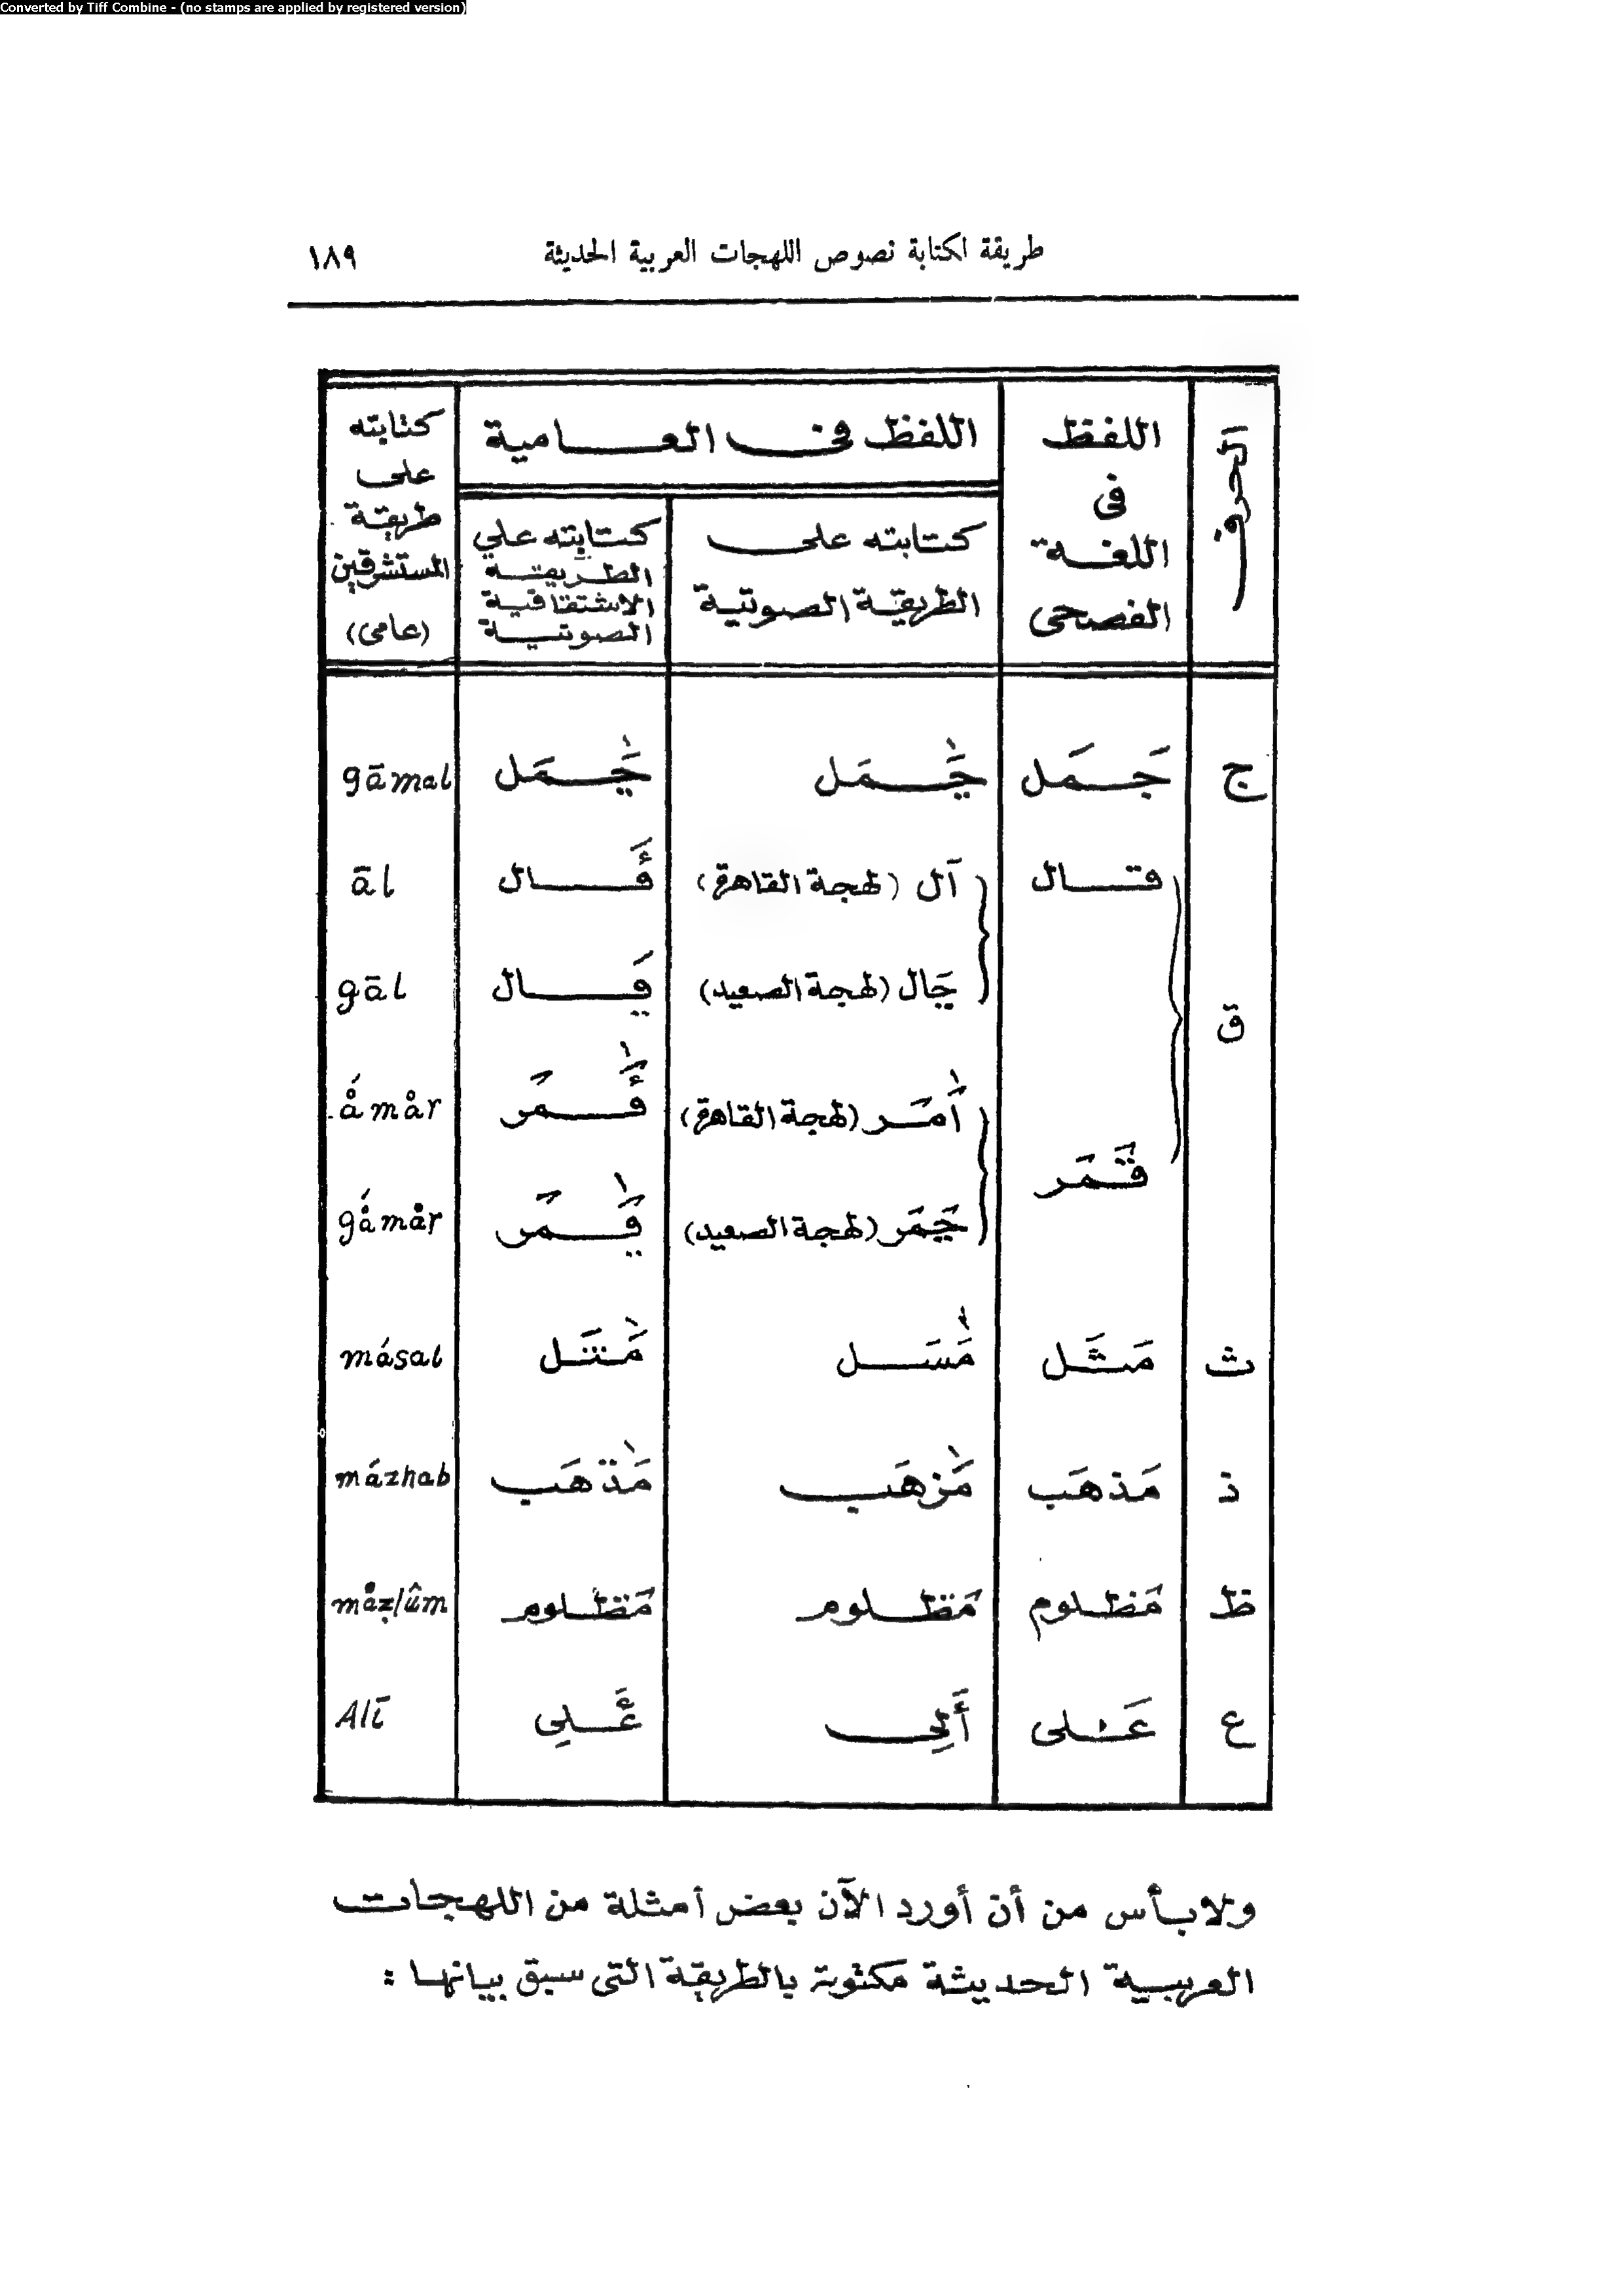 Converted by Tiff Combine - (no stamps are applied by registered version)
طريقة لكتابة نصوص اللهجات العربية الحديثة ١٨٩
الحرف
اللفظ
فى
اللغة
الفصحى
اللفظ فى العامية
كتابته على
الطريقة الصوتية
كتابته على
الطريقة
الاشتقاقية
الصوتية
كتابته
على
طريقة
المستشرقين
(عامى)
ج جَمَل جَمَل جَمَل gāmal
ق
قال آل (لهجة القاهرة) قَال āl
جَال (لهجة الصعيد) قَال gāl
قَمَر أمَر (لهجة القاهرة) قَمَر ǻmår
جَمَر (لهجة الصعيد) قَمَر gǻmår
ث مَثَل مَسَل مَثَل másal
ذ مَذهَب مَزهَب مَذهَب mázhab
ظ مَظلوم مَظلوم مَظلوم måẓlûm
ع عَلى أَلِى عَلِى Alī
ولا بأس من أن أورد الآن بعض أمثلة من اللهجات
العربية الحديثة مكتوبة بالطريقة التى سبق بيانها :